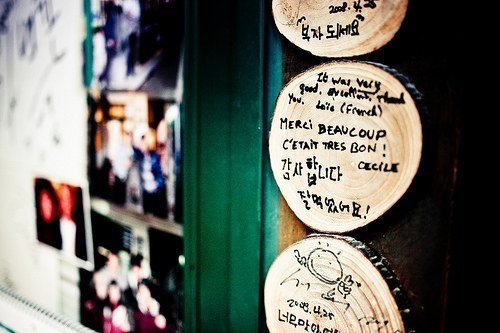 2008. 4. 25
부자 되세요
It was very
good, excellent, thank
you. Loïe (French)
MERCI BEAUCOUP
C'ETAIT TRES BON!
CECILE
감사합니다
잘먹었어요!
2008. 4.25